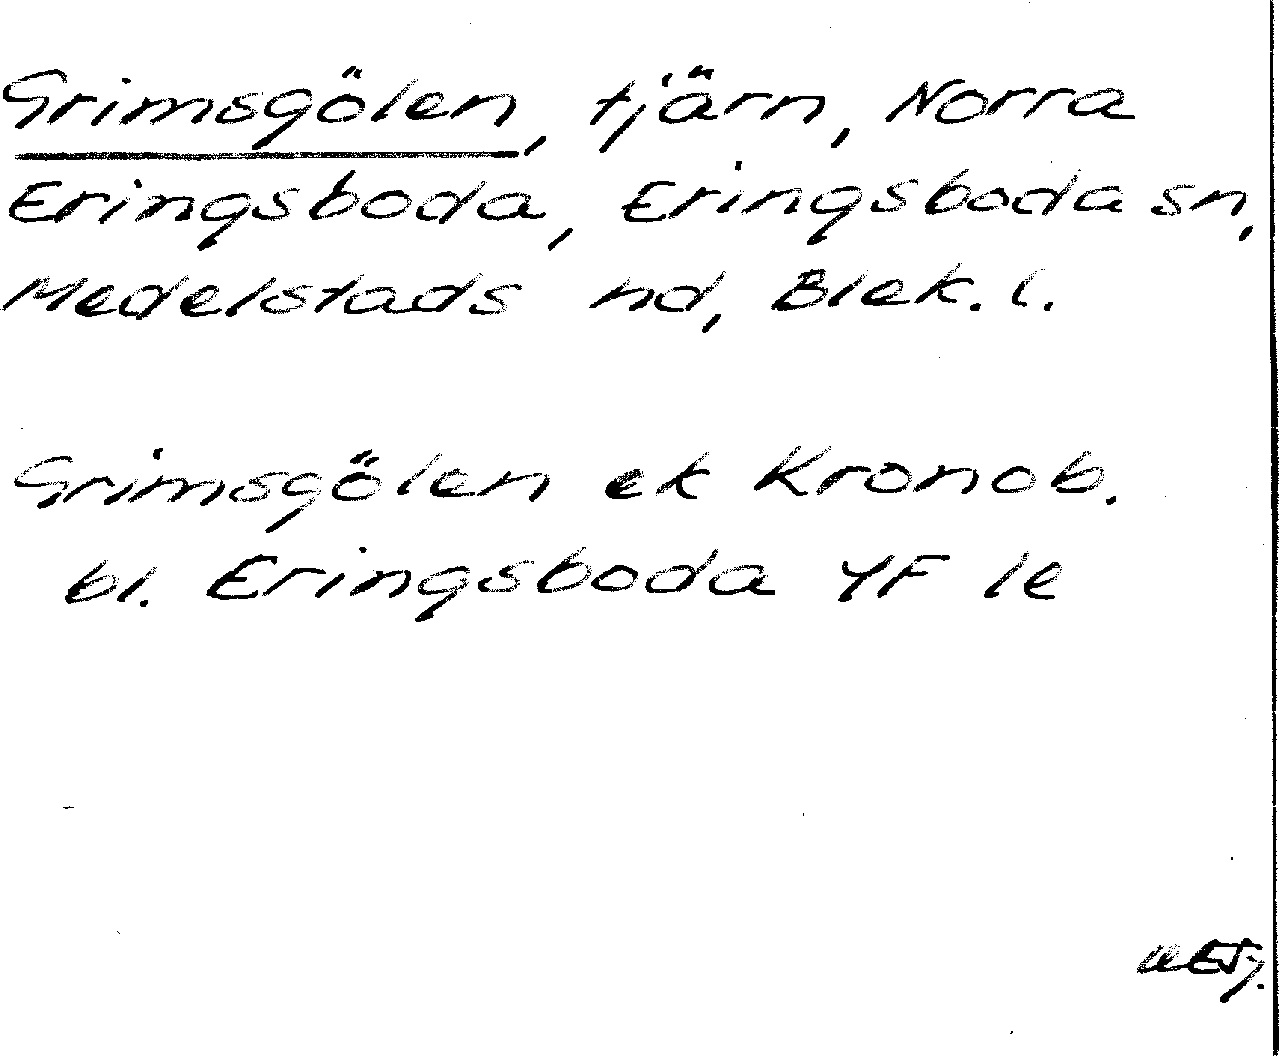 Grimsgölen, tjärn, Norra
Eringsboda, Eringsboda sn,
Medelstads hd, Blek. l.
Grimsgölen ek Kronob.
bl. Eringsboda 4F le